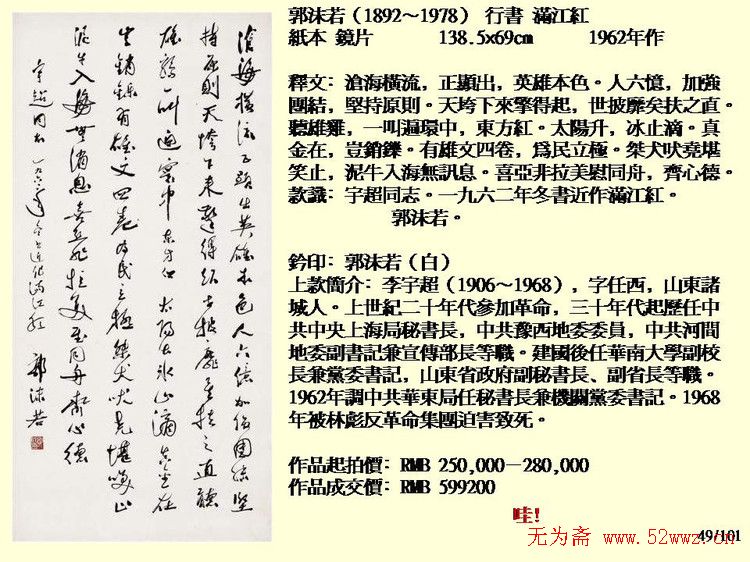 滄海橫流正顯出英雄本色人六億加强團結堅
持原則天垮下來擎得起世披靡矣扶之直聽
雄鷄一叫遍寰中東方紅太陽出冰山滴真金在
豈銷鑠有雄文四卷為民立極桀犬吠堯堪笑止
泥牛入海無消息喜亞非拉美慰同舟齊心德
宇超同志 一九六二年冬書近作滿江紅 郭沫若
郭沫若（1892～1978） 行書 滿江紅
紙本 鏡片 138.5x69cm 1962年作
釋文：滄海橫流，正顯出，英雄本色。人六憶，加強
團結，堅持原則。天垮下來擎得起，世披靡矣扶之直。
聽雄雞，一叫遍環中，東方紅。太陽升，冰止滴。真
金在，豈銷鑠。有雄文四卷，爲民立極。桀犬吠堯堪
笑止，泥牛入海無訊息。喜亞非拉美慰同舟，齊心德。
款識：宇超同志。一九六二年冬書近作滿江紅。
郭沫若。
鈐印：郭沫若（白）
上款簡介：李宇超（1906～1968），字任西，山東諸
城人。上世紀二十年代參加革命，三十年代起歷任中
共中央上海局秘書長，中共豫西地委委員，中共河間
地委副書記兼宣傳部長等職。建國後任華南大學副校
長兼黨委書記，山東省政府副秘書長、副省長等職。
1962年調中共華東局任秘書長兼機關黨委書記。1968
年被林彪反革命集團迫害致死。
作品起拍價：RMB 250,000－280,000
作品成交價：RMB 599200
哇!
无为斋 www.52wwz.cn
49/101